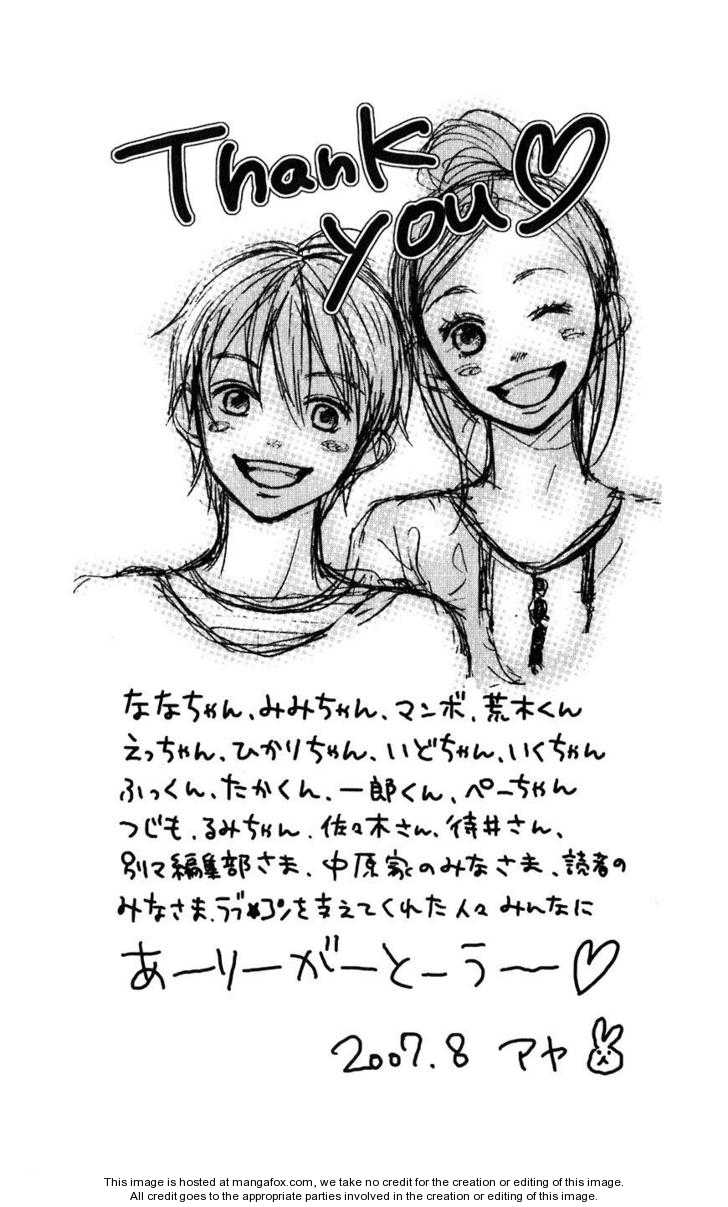 Thank
you♡
ななちゃん、みみちゃん、マンボ、荒木くん
えっちゃん、ひかりちゃん、いどちゃん、いくちゃん
ふっくん、たかくん、一郎くん、ペーちゃん
つじも、るみちゃん、佐々木さん、待井さん、
別マ編集部さま、中原家のみなさま、読者の
みなさま、ラブ★コンを支えてくれた人々 みんなに
あーりーがーとーうー♡
2007.8 アヤ
This image is hosted at mangafox.com, we take no credit for the creation or editing of this image.
All credit goes to the appropriate parties involved in the creation or editing of this image.